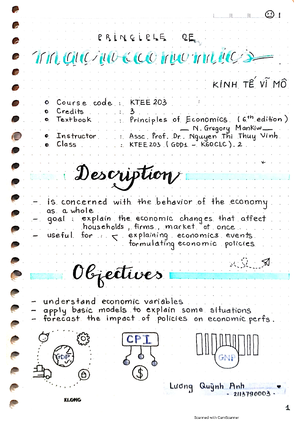 1
PRINCIPLE OF
macroeconomics
KINH TẾ VĨ MÔ
Course code : KTEE 203
Credits : 3
Textbook : Principles of Economics (6th edition)
— N. Gregory Mankiw —
Instructor : Assc. Prof. Dr. Nguyen Thi Thuy Vinh
Class : KTEE 203 (GDD1 - K60CLC). 2
Description
– is concerned with the behavior of the economy
as a whole
– goal : explain the economic changes that affect
households, firms, market at once.
– useful for : < explaining economics events
formulating economic policies
Objectives
– understand economic variables
– apply basic models to explain some situations
– forecast the impact of policies on economic perfs.
GDP
CPI
$
GNP
Lương Quỳnh Anh
- 2113790003 -
KLONG
1
Scanned with CamScanner